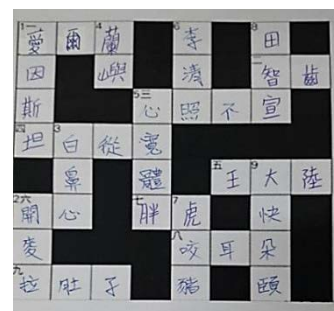 1一 愛 爾 4 蘭 6 李 8 田
因 嶼 清 二 智 齒
斯 5三 心 照 不 宣
四 坦 3 白 從 寬
鼻 體 五 王 9 大 陸
2六 開 心 七 胖 7 虎 快
麥 八 咬 耳 朵
九 拉 肚 子 豬 頤